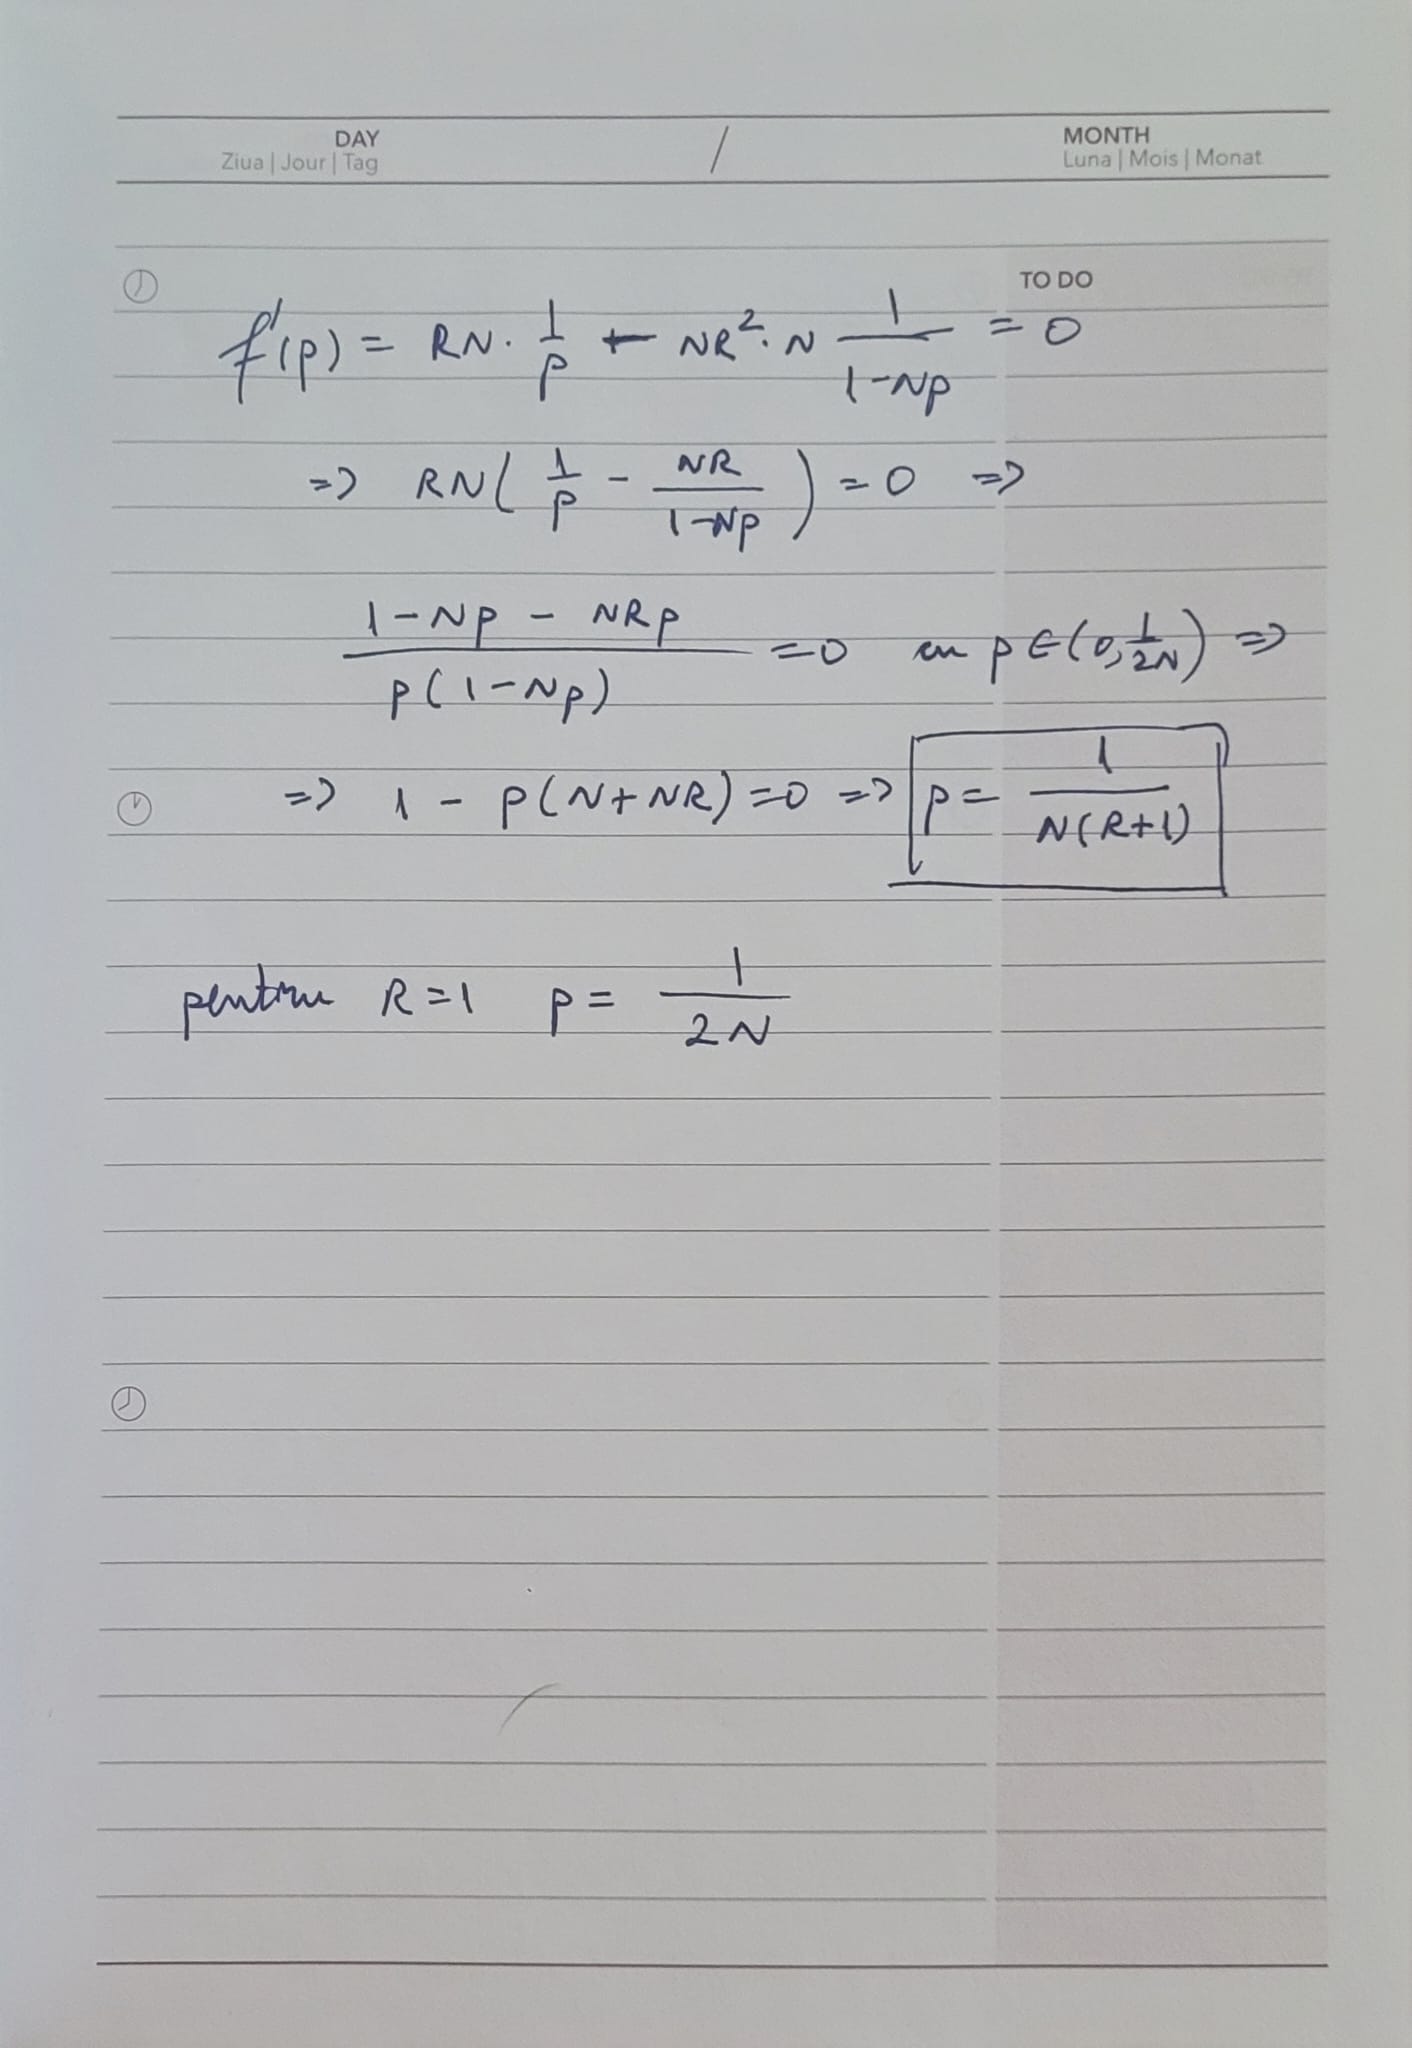 DAY / MONTH
Ziua | Jour | Tag Luna | Mois | Monat
TO DO
f'(p) = RN · 1/p + NR² · N 1/(1-Np) = 0
=> RN( 1/p - NR/(1-Np) ) = 0 =>
(1-Np - NRp)/(p(1-Np)) = 0 cu p ∈ (0, 1/2N) =>
=> 1 - p(N+NR) = 0 => p = 1/(N(R+1))
pentru R=1 p = 1/2N